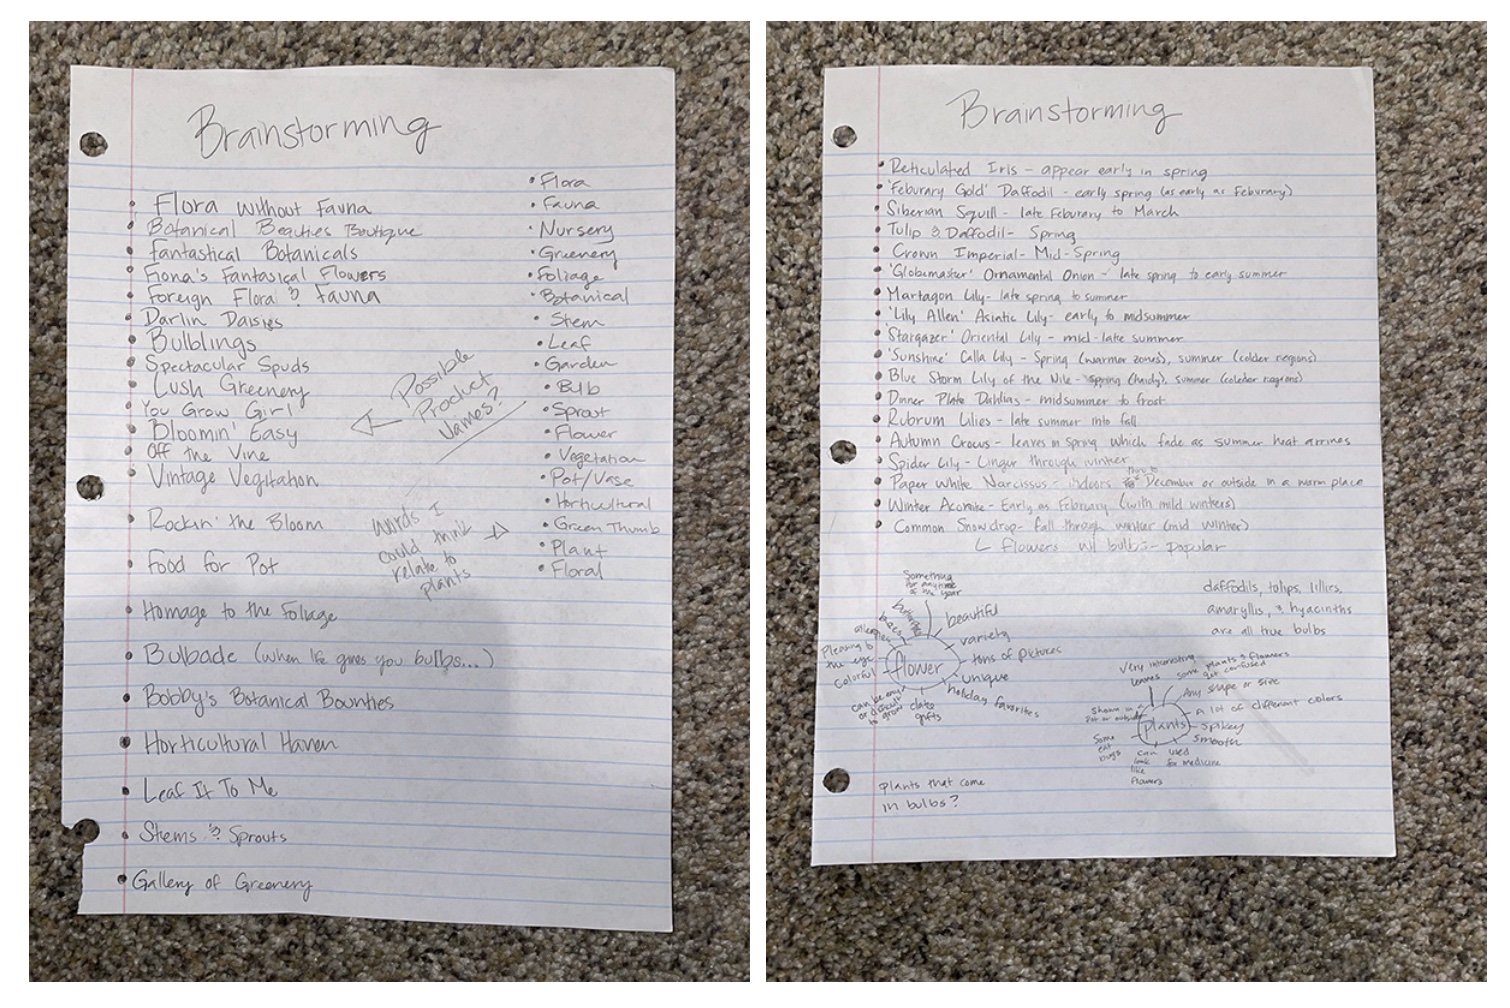 Brainstorming
Flora without Fauna
Botanical Beauties Boutique
Fantastical Botanicals
Fiona's Fantasical Flowers
Foreign Floral & Fauna
Darlin Daisies
Bulblings
Spectacular Spuds
Lush Greenery
You Grow Girl
Bloomin' Easy
Off the Vine
Vintage Vegitation
Rockin' the Bloom
Food for Pot
Homage to the Foliage
Bulbade (when life gives you bulbs...)
Bobby's Botanical Bounties
Horticultural Haven
Leaf It To Me
Stems & Sprouts
Gallery of Greenery
Possible
Product
Names?
words I
could think
relate to
plants
Flora
Fauna
Nursery
Greenery
Foliage
Botanical
Stem
Leaf
Garden
Bulb
Sprout
Flower
Vegetation
Pot/Vase
Horticultural
Green Thumb
Plant
Floral
Brainstorming
Reticulated Iris - appear early in spring
'Feburary Gold' Daffodil - early spring (as early as Feburary)
Siberian Squill - late Feburary to March
Tulip & Daffodil - Spring
Crown Imperial - Mid-Spring
'Globemaster' Ornamental Onion - late spring to early summer
Martagon Lily - late spring to summer
'Lily Allen' Asiatic Lily - early to midsummer
'Stargazer' Oriental Lily - mid-late summer
'Sunshine' Calla Lily - Spring (warmer zones), summer (colder regions)
Blue Storm Lily of the Nile - Spring (hardy), summer (colder regions)
Dinner Plate Dahlias - midsummer to frost
Rubrum Lilies - late summer into fall
Autumn Crocus - leaves in Spring which fade as summer heat arrives
Spider Lily - Lingur through winter
Paper White Narcissus - indoors thru to December or outside in a warm place
Winter Aconite - Early as February (with mild winters)
Common Snowdrop - fall through winter (mid winter)
flowers w/ bulbs - popular
flower
Something
for anytime
of the year
beautiful
variety
tons of pictures
unique
holiday favorites
date
gifts
can be easy
or difficult
to grow
Colorful
Pleasing to
the eye
allergies
bees
butterflies
daffodils, tulips, lillies,
amaryllis, & hyacinths
are all true bulbs
plants
very interesting
leaves
some plants & flowers
get confused
Any shape or size
A lot of different colors
spikey
smooth
used
for medicine
can
look
like
flowers
Some
eat
bugs
Shown in a
Pot or outside
plants that come
in bulbs?